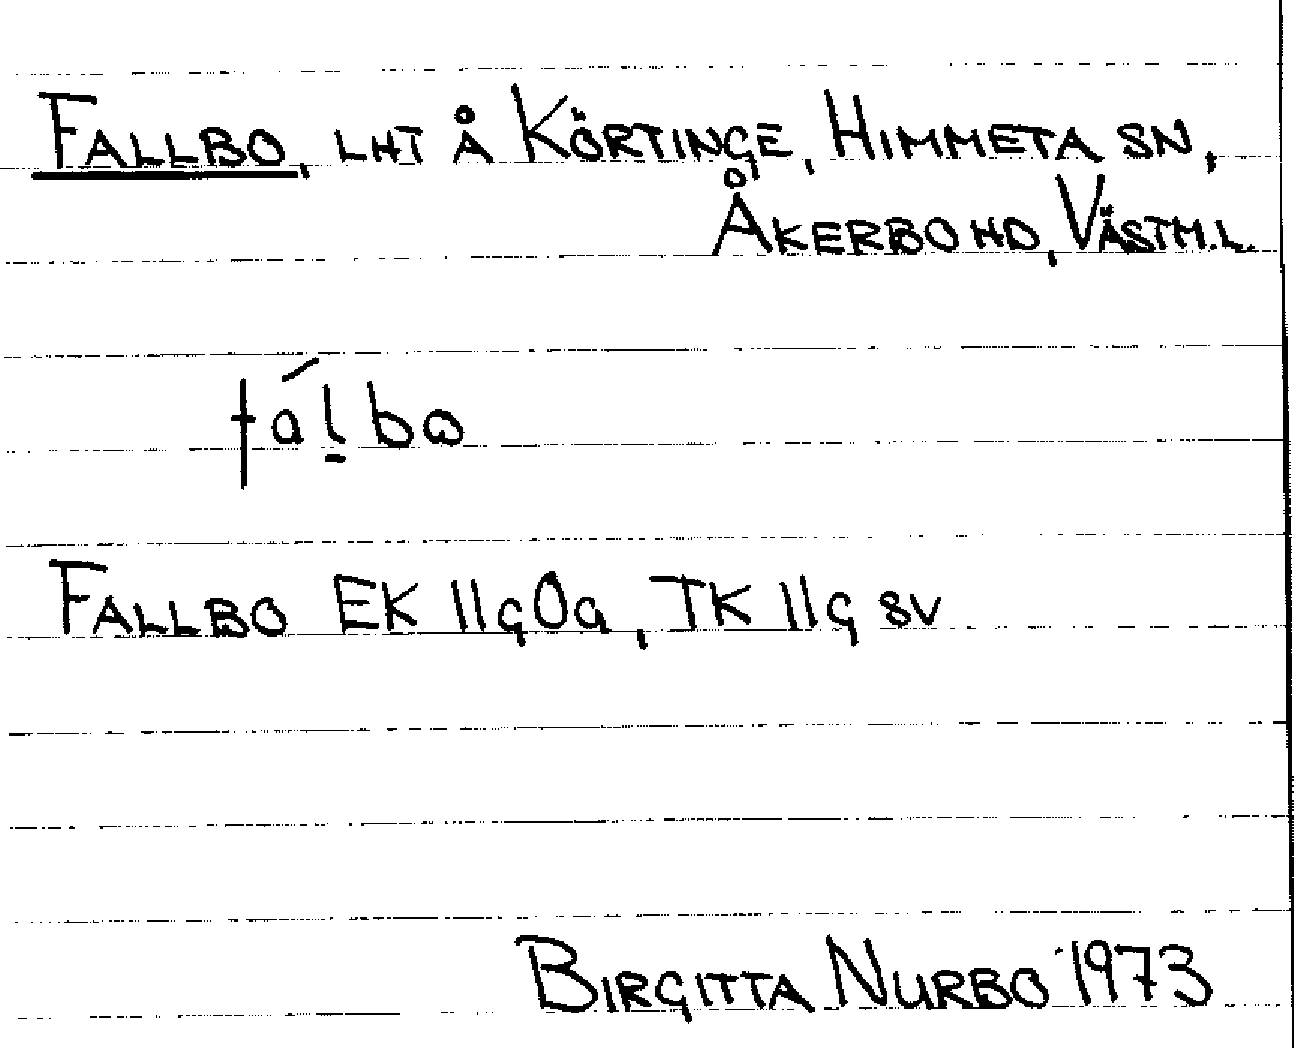 FALLBO, LHT Å KÖRTINGE, HIMMETA SN,
ÅKERBO HD, VÄSTM.L.
fál̠bω
FALLBO EK 11g0a, TK 11g SV
BIRGITTA NURBO 1973